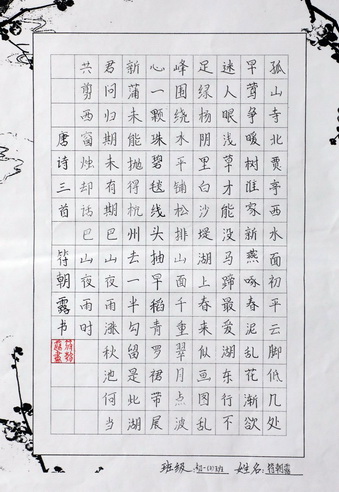 孤山寺北贾亭西水面初平云脚低几处
早莺争暖树谁家新燕啄春泥乱花渐欲
迷人眼浅草才能没马蹄最爱湖东行不
足绿杨阴里白沙堤湖上春来似画图乱
峰围绕水平铺松排山面千重翠月点波
心一颗珠碧毯线头抽早稻青罗裙带展
新蒲未能抛得杭州去一半勾留是此湖
君问归期未有期巴山夜雨涨秋池何当
共剪西窗烛却话巴山夜雨时
唐诗三首 符朝露书
班级: 姓名:符朝露